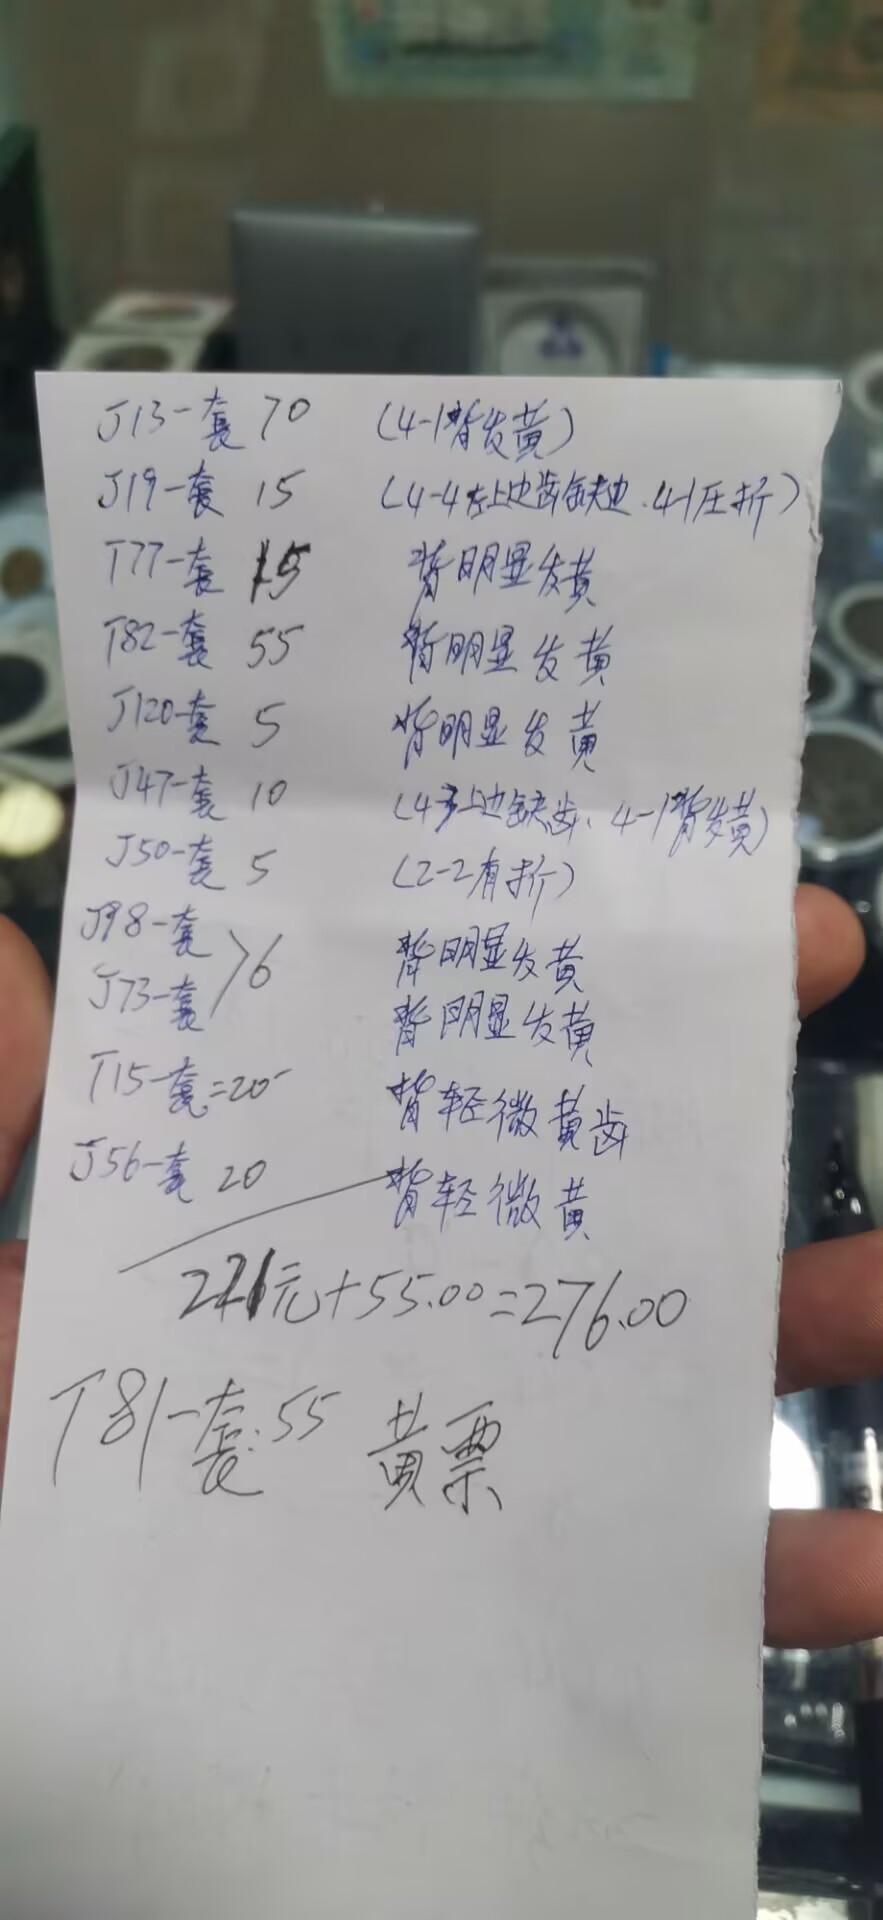 J13一套 70 (4-1背发黄)
J19一套 15 (4-4左上边齿缺边.4-1压折)
T77一套 15 背明显发黄
T82一套 55 背明显发黄
J120一套 5 背明显发黄
J47一套 10 (4 上边缺齿、4-1背发黄)
J50一套 5 (2-2有折)
J98一套 背明显发黄
>6
J73一套 背明显发黄
T15一套=20 背轻微黄齿
J56一套 20 背轻微黄
221元+55.00=276.00
T81一套:55 黄票